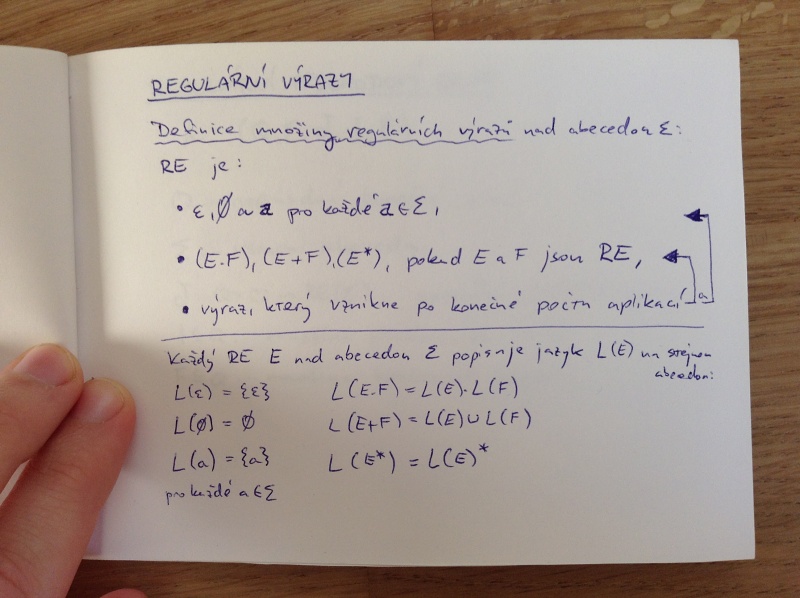 REGULÁRNÍ VÝRAZY
Definice množiny regulárních výrazů nad abecedou Σ:
RE je:
• ε, ∅ a a pro každé a ∈ Σ,
• (E.F), (E+F), (E*), pokud E a F jsou RE,
• výraz, který vznikne po konečné počtu aplikací a
Každý RE E nad abecedou Σ popisuje jazyk L(E) na stejnou
abecedou:
L(ε) = {ε} L(E.F) = L(E).L(F)
L(∅) = ∅ L(E+F) = L(E) ∪ L(F)
L(a) = {a} L(E*) = L(E)*
pro každé a ∈ Σ